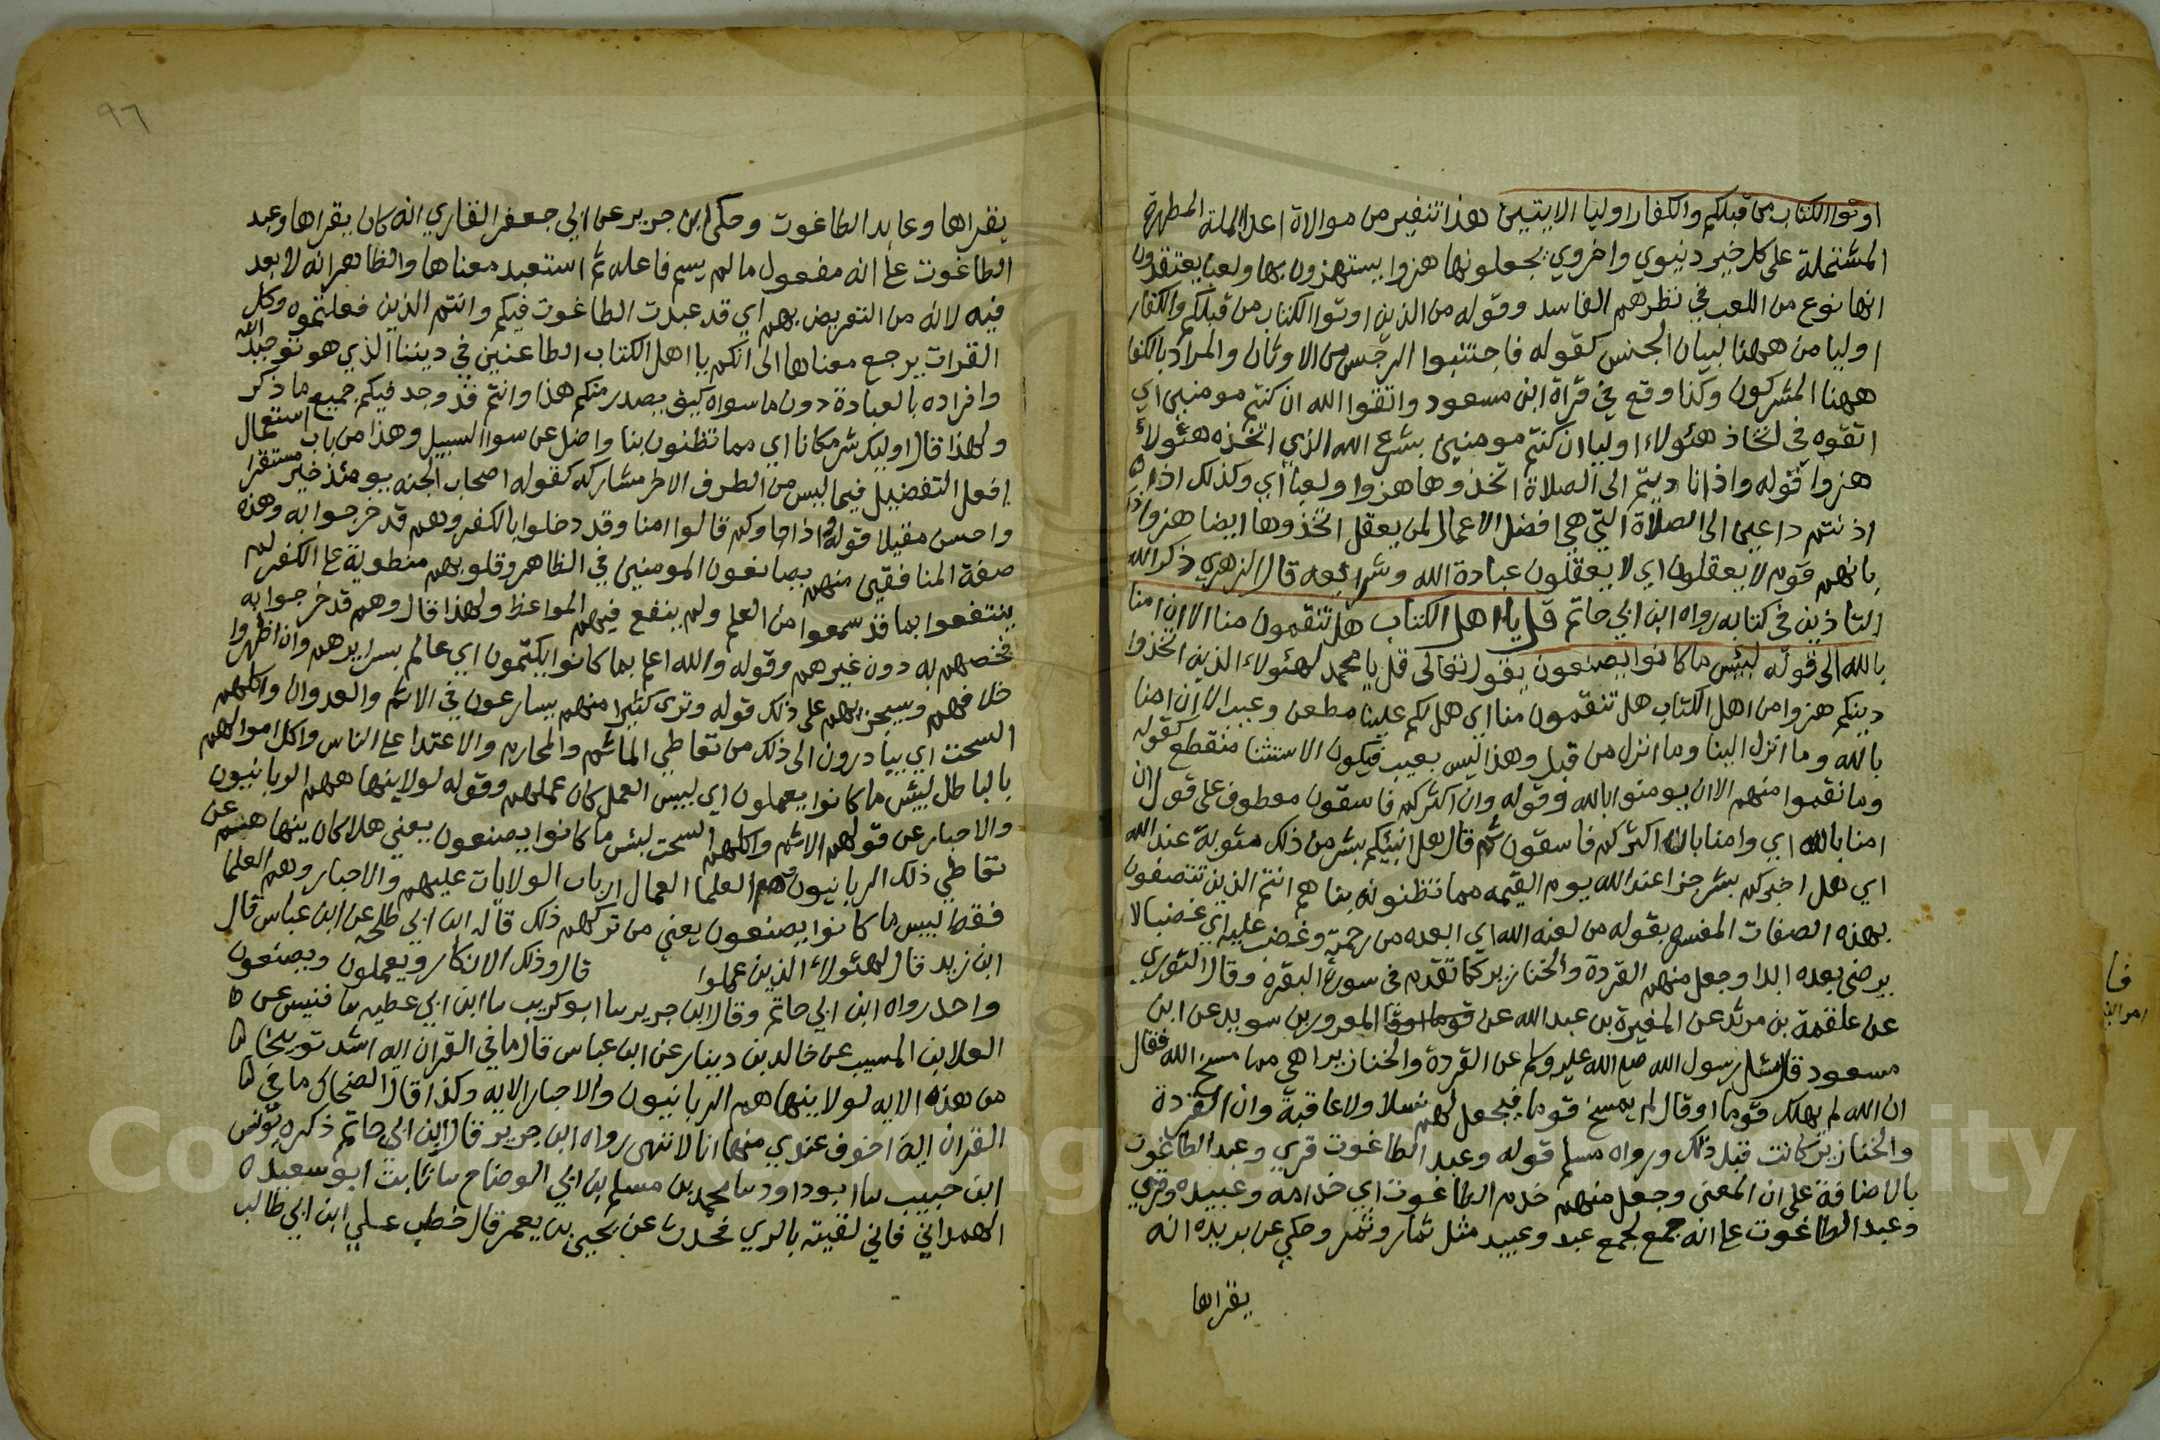 اوتوا الكتاب من قبلكم والكفار اوليا الايتين هذا تنفير من موالاة اعدا الملة المطهرة
المشتملة على كل خير دنيوي واخروي يجعلونها هزوا يستهزون بها ولعبا يعتقدون
انها نوع من اللعب في نظرهم الفاسد وقوله من الذين اوتوا الكتاب من قبلكم والكفار
اوليا من ههنا لبيان الجنس كقوله فاجتنبوا الرجس من الاوثان والمراد بالكفار
ههنا المشركون وكذا وقع في قراة ابن مسعود واتقوا الله ان كنتم مومنين اي
اتقوه في اتخاذ هئولاء اوليا ان كنتم مومنين بشرع الله الذي اتخذه هئولاء
هزوا قوله واذا ناديتم الى الصلاة اتخذوها هزوا ولعبا اي وكذلك اذا
اذنتم داعين الى الصلاة التي هي افضل الاعمال لمن يعقل اتخذوها ايضا هزوا ذلك
بانهم قوم لا يعقلون اي لا يعقلون عبادة الله وشرايعه قال الزهري ذكر الله
التاذين في كتابه رواه ابن ابي حاتم قل يا اهل الكتاب هل تنقمون منا الا ان امنا
بالله الى قوله لبئس ما كانوا يصنعون يقول تعالى قل يا محمد لهئولاء الذين اتخذوا
دينكم هزوا من اهل الكتاب هل تنقمون منا اي هل لكم علينا مطعن وعيب الا ان امنا
بالله وما انزل الينا وما انزل من قبل وهذا ليس بعيب فيكون الاستثنا منقطع كقوله
وما نقموا منهم الا ان يومنوا بالله وقوله وان اكثركم فاسقون معطوف على قول ان
امنا بالله اي وامنا بان اكثركم فاسقون ثم قال هل انبئكم بشر من ذلك مثوبة عند الله
اي هل اخبركم بشر جزا عند الله يوم القيمه مما تظنونه بنا هم انتم الذين تتصفون
بهذه الصفات المفسره بقوله من لعنه الله اي ابعده من رحمته وغضب عليه اي غضبا لا
يرضى بعده ابدا وجعل منهم القردة والخنازير كما تقدم في سورة البقرة وقال الثوري
عن علقمة بن مرثد عن المغيرة بن عبد الله عن المعرور بن سويد عن ابن
مسعود قال سئل رسول الله صلى الله عليه وسلم عن القردة والخنازير اهي مما مسخ الله فقال
ان الله لم يهلك قوما او قال لم يمسخ قوما فيجعل لهم نسلا ولا عاقبة وان القردة
والخنازير كانت قبل ذلك ورواه مسلم قوله وعبد الطاغوت قري وعبد الطاغوت
بالاضافة على ان المعنى وجعل منهم خدم الطاغوت اي خدامه وعبيده وقري
وعبد الطاغوت على انه جمع لجمع عبد وعبيد مثل ثمار وثمر وحكي عن بريده انه
يقراها
٩٦
يقراها وعابد الطاغوت وحكى ابن جرير عن ابي جعفر القاري انه كان يقراها وعبد
الطاغوت على انه مفعول ما لم يسم فاعله ثم استبعد معناها والظاهر انه لا بعد
فيه لانه من التعريض بهم اي قد عبدت الطاغوت فيكم وانتم الذين فعلتموه وكل
القرات يرجع معناها الى انكم يا اهل الكتاب الطاعنين في ديننا الذي هو توحيد الله
وافراده بالعبادة دون ما سواه كيف يصدر منكم هذا وانتم قد وجد فيكم جميع ما ذكر
ولهذا قال اوليك شر مكانا اي مما تظنون بنا واضل عن سوا السبيل وهذا من باب استعمال
افعل التفضيل فيما ليس من الطرف الاخر مشاركه كقوله اصحاب الجنه يومئذ خير مستقرا
واحسن مقيلا قوله واذا جاوكم قالوا امنا وقد دخلوا بالكفر وهم قد خرجوا به وهذه
صفة المنافقين منهم يصانعون المومنين في الظاهر وقلوبهم منطوية على الكفر لم
ينتفعوا بما قد سمعوا من العلم ولم ينفع فيهم المواعظ ولهذا قال وهم قد خرجوا به
فخصهم به دون غيرهم وقوله والله اعلم بما كانوا يكتمون اي عالم بسرايرهم وان اظهروا
خلافهم وسيجزيهم على ذلك قوله وترى كثيرا منهم يسارعون في الاثم والعدوان واكلهم
السحت اي يبادرون الى ذلك من تعاطي الماثم والمحارم والاعتدا على الناس واكل اموالهم
بالباطل لبئس ما كانوا يعملون اي لبيس العمل كان عملهم وقوله لولا ينهاهم الربانيون
والاحبار عن قولهم الاثم واكلهم السحت لبئس ما كانوا يصنعون يعني هلا كان ينهاهم عن
تعاطي ذلك الربانيون وهم العلما العمال ارباب الولايات عليهم والاحبار وهم العلما
فقط لبيس ما كانوا يصنعون يعني من تركهم ذلك قاله ابن ابي طلحه عن ابن عباس قال
ابن زيد قال لهئولاء الذين عملوا قال وذلك الانكار ويعملون ويصنعون
واحد رواه ابن ابي حاتم وقال ابن جرير سا ابو كريب سا ابن ابي عطيه سا قيس عن
العلا بن المسيب عن خالد بن دينار عن ابن عباس قال ما في القران ايه اشد توبيخا
من هذه الايه لولا ينهاهم الربانيون والاحبار الايه وكذا قال الضحاك ما في
القران اية اخوف عندي منها انا لا ننهى رواه ابن جرير قال ابن ابي حاتم ذكره يونس
ابن حبيب سا ابو داود سا محمد بن مسلم ابن ابي الوضاح سا ثابت ابو سعيد
الهمداني فاني لقيته بالري فحدث عن يحيى بن يعمر قال خطب علي ابن ابي طالب